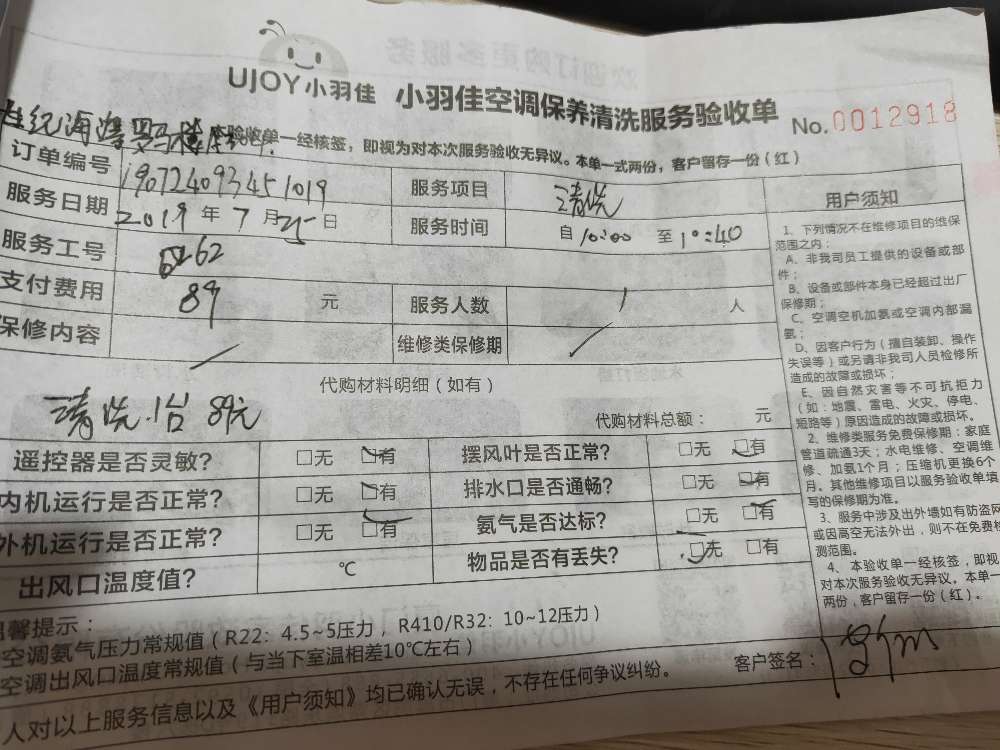 UJOY小羽佳 小羽佳空调保养清洗服务验收单 No.0012918
世纪海
验收单一经核签，即视为对本次服务验收无异议。本单一式两份，客户留存一份（红）
订单编号 190724093451019 服务项目 清洗
服务日期 2019年7月25日 服务时间 自10:00至10:40
服务工号 6262
支付费用 89元 服务人数 1人
保修内容 维修类保修期
代购材料明细（如有）
清洗1台 89元
代购材料总额： 元
遥控器是否灵敏? □无 □有 摆风叶是否正常? □无 □有
内机运行是否正常? □无 □有 排水口是否通畅? □无 □有
外机运行是否正常? □无 □有 氨气是否达标? □无 □有
出风口温度值? ℃ 物品是否有丢失? □无 □有
馨提示：
空调氨气压力常规值（R22：4.5~5压力，R410/R32：10~12压力）
空调出风口温度常规值（与当下室温相差10℃左右）
人对以上服务信息以及《用户须知》均已确认无误，不存在任何争议纠纷。
客户签名：
用户须知
1、下列情况不在维修项目的维保
范围之内：
A、非我司员工提供的设备或部
件；
B、设备或部件本身已经超过出厂
保修期；
C、空调空机加氨或空调内部漏
氨；
D、因客户行为（擅自装卸、操作
失误等）或另请非我司人员检修所
造成的故障或损坏；
E、因自然灾害等不可抗拒力
（如：地震、雷电、火灾、停电、
短路等）原因造成的故障或损坏。
2、维修类服务免费保修期：家庭
管道疏通3天；水电维修、空调维
修、加氨1个月；压缩机更换6个
月。其他维修项目以服务验收单填
写的保修期为准。
3、服务中涉及出外墙如有防盗网
或因高空无法外出，则不在免费检
测范围。
4、本验收单一经核签，即视
对本次服务验收无异议。本单一
两份，客户留存一份（红）。